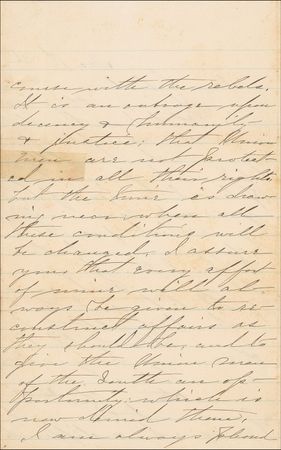 course with the rebels.
It is an outrage upon
decency & humanity
& justice; that Union
men are not protect-
ed in all their rights,
but the time is draw
ing near when all
these conditions will
be changed. I assure
you that every effort
of mine will al-
ways be given to re-
construct affairs as
they should be, and to
give the Union men
of the South an op-
portunity which is
now denied them.
I am always